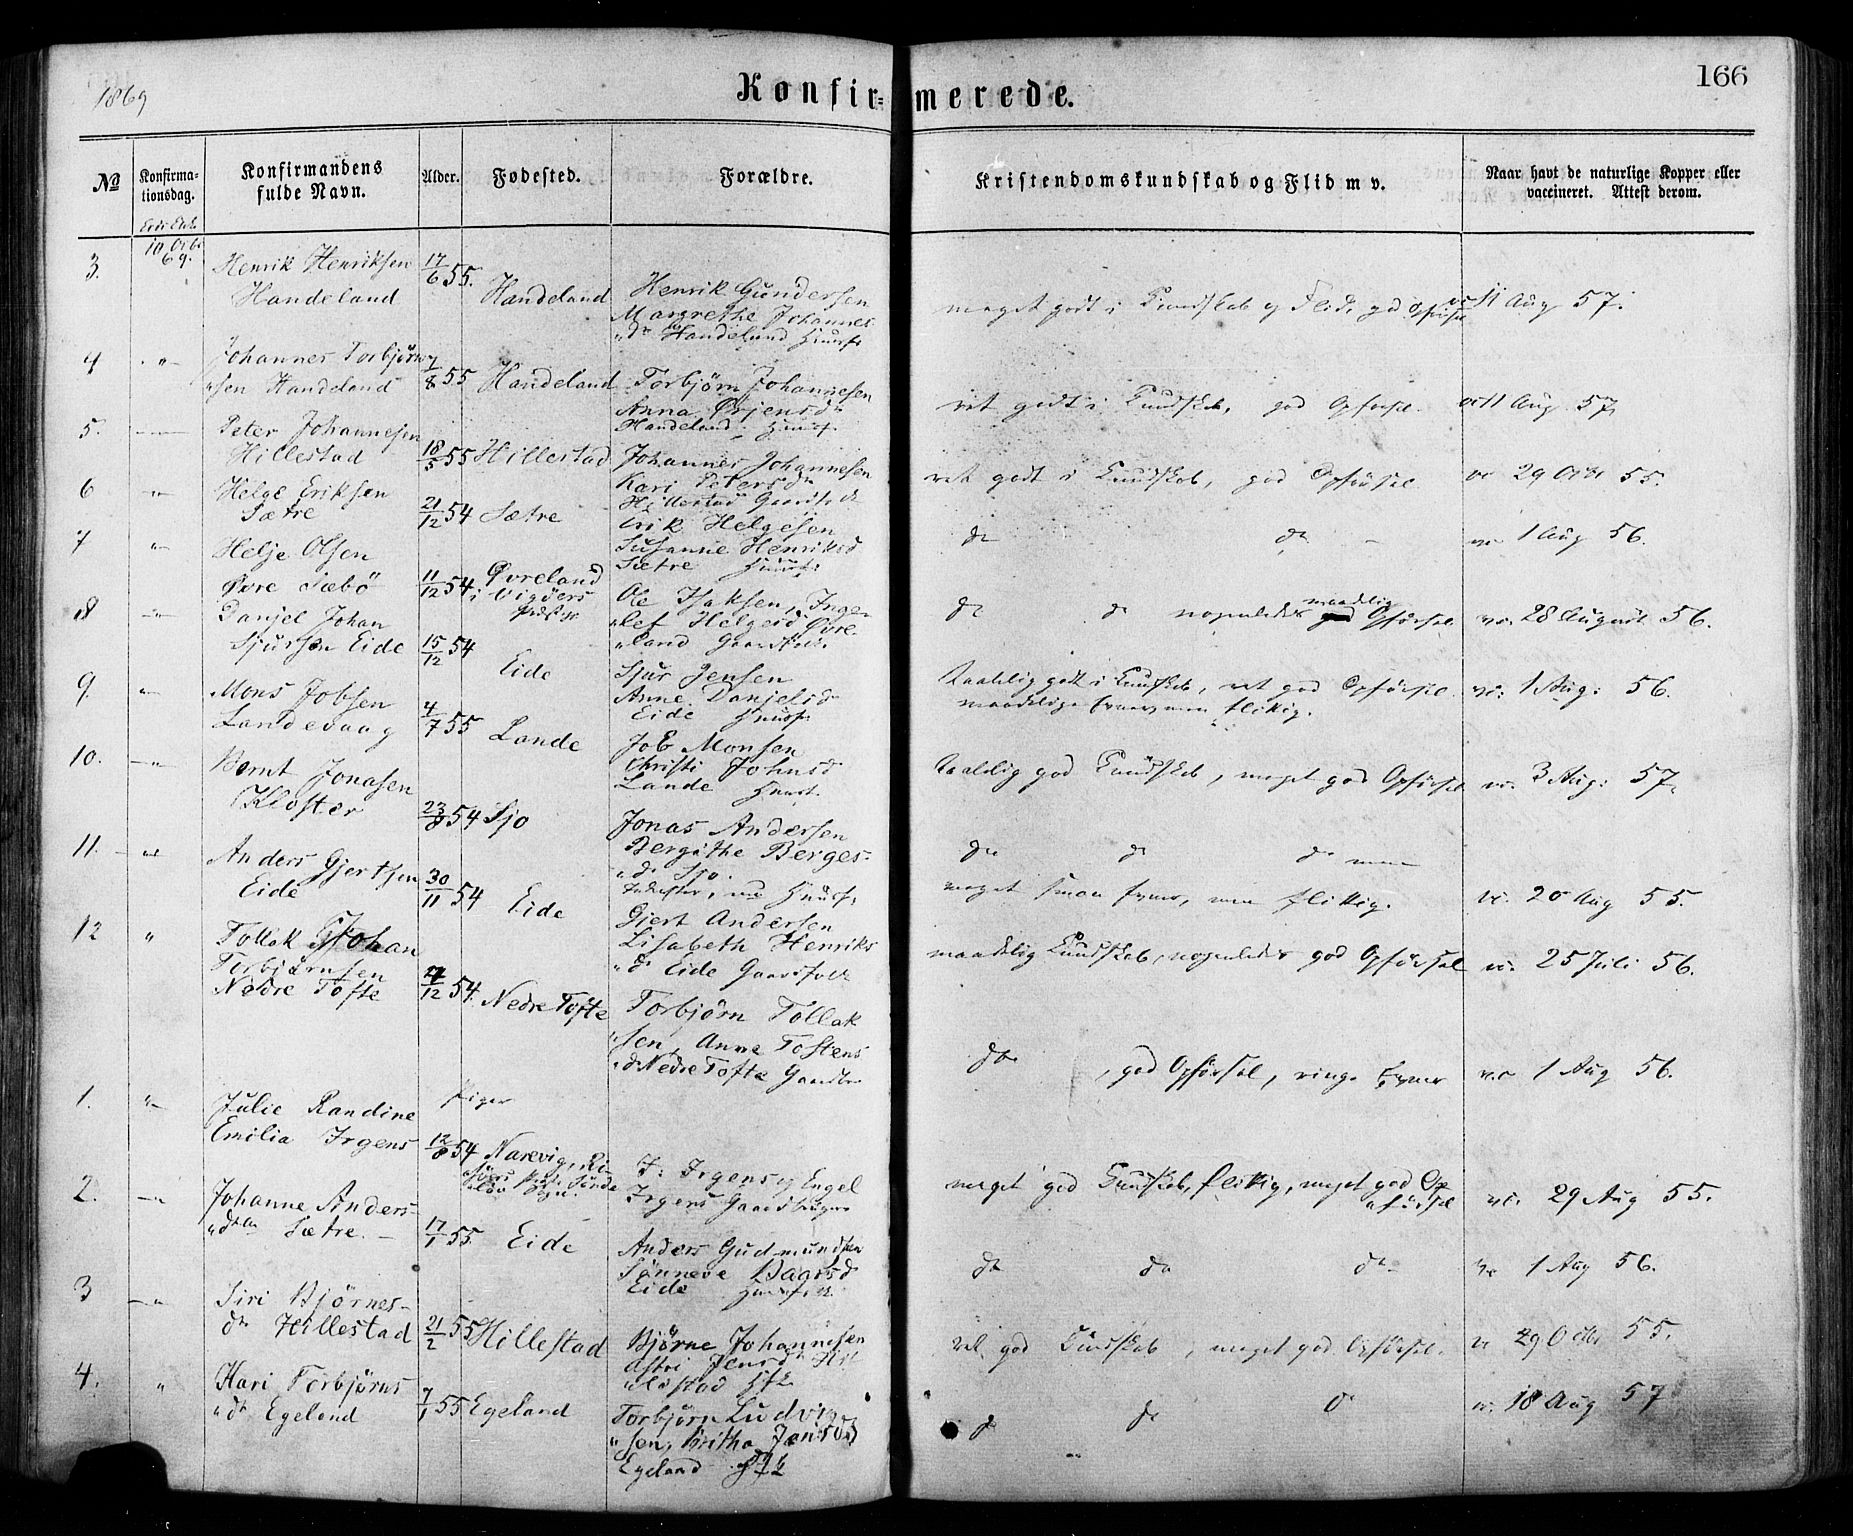 1869
Konfir= merede.
166
No
Konfirma-
tionsdag.
Konfirmandens
fulde Navn.
Alder.
Fødested.
Forældre.
Kristendomskundskab og Flid m v.
Naar havt de naturlige Kopper eller
vaccineret. Attest derom.
10 Octbr
69.
3. Henrik Henriksen 17/6 55.
Handeland Handeland
Henrik Gundersen
Margrethe Johannes
"dr Handeland Huusf:
meget godt i Kundskab og Flid, god Opførsel
vc 11 Aug 57.
4 " Johannes Torbjørn
"sen Handeland 7/8 55 Handeland
Torbjørn Johannesen
Anna Ørjensdr
Handeland, Huusf.
ret godt i Kundskab, god Opførsel.
vc 11 Aug 57.
5. Peter Johannesen
Hillestad 18/5 55 Hillestad
Johannes Johannesen
Kari Petersdr
Hillestad
ret godt i Kundskab, god Opførsel
vc 29 Octbr 55.
6 " Helge Eriksen
Sætre 21/12 54 Sætre
Erik Helgesen
Susanne Henriksd
Sætre Huusf:
do do -
vc 1 Aug 56.
7 " Helje Olsen
Øvre Sæbö 11/12 54 Øvreland
i Vigörs
Præstgj.
Ole Isaksen, Inge
"lef Helgesd Øvre
"land
do do nogenledes maadelig Opførsel
vc. 28 August 56.
8 " Danjel Johan
Sjursen Eide 15/12 54
Eide
Sjur Jensen
Anne Danjelsd
Eide Huusf:
Taalelig godt i Kundskab, ret god Opførsel.
maadelige Evner men flittig.
vc: 1 Aug: 56.
9. " Mons Jobsen
Landevaag 4/7 55 Lande
Job Monsen
Christi Johnsd
Lande Huusf.
Taalelig god Kundskab, meget god Opførsel
vc. 3 Aug: 57.
10. " Bernt Jonasen
Kloster 23/8 54 Sjo
Jonas Andersen
Bergithe Berges-
"dr Sjo.
Huusf.
do do do men
meget smaa Evner, men flittig.
vc. 20 Aug 55.
11. " Anders Gjertsen
Eide 30/11 54 Eide
Gjert Andersen
Lisabeth Henriks
"dr Eide Gaardsfolk
maadelig Kundskab, nogenledes god Opførsel
vc: 25 Juli 56.
12 " Tollak Johan
Torbjørnsen
Nedre Tofte 12 54. Nedre Tofte
Torbjørn Tollak
"sen, Anne Tostens
"dr Nedre Tofte Gaardbr
do , god Opførsel, ringe Evner
vc 1 Aug 56.
Piger
1. " Julie Randine
Emilia Irgens 12/8 54 Narevig, Ri
J: Irgens og Engel
Irgens Gaardbruger
meget god Kundskab, flittig, meget god Op
"førsel
vc. 29 Aug 55.
2. " Johanne Anders-
"dtr Sætre. 17/1 55. Eide
Anders Gudmundsen
Sønneve Baarsd
Eide
do do do
vc 1 Aug 56.
3 " Siri Bjørnes-
dtr Hillestad 21/2 55 Hillestad
Bjørne Johannesen
Astri Jensdtr Hil
"lestad Hfk
vel god Kundskab, meget god Opførsel.
vc 29 Octbr 55.
4. " Kari Torbjørns
"dtr Egeland 7/1 55 Egeland
Torbjørn Ludvig
"sen, Britha Jensd
Egeland Hfk
do do do
vc. 18 Aug 57